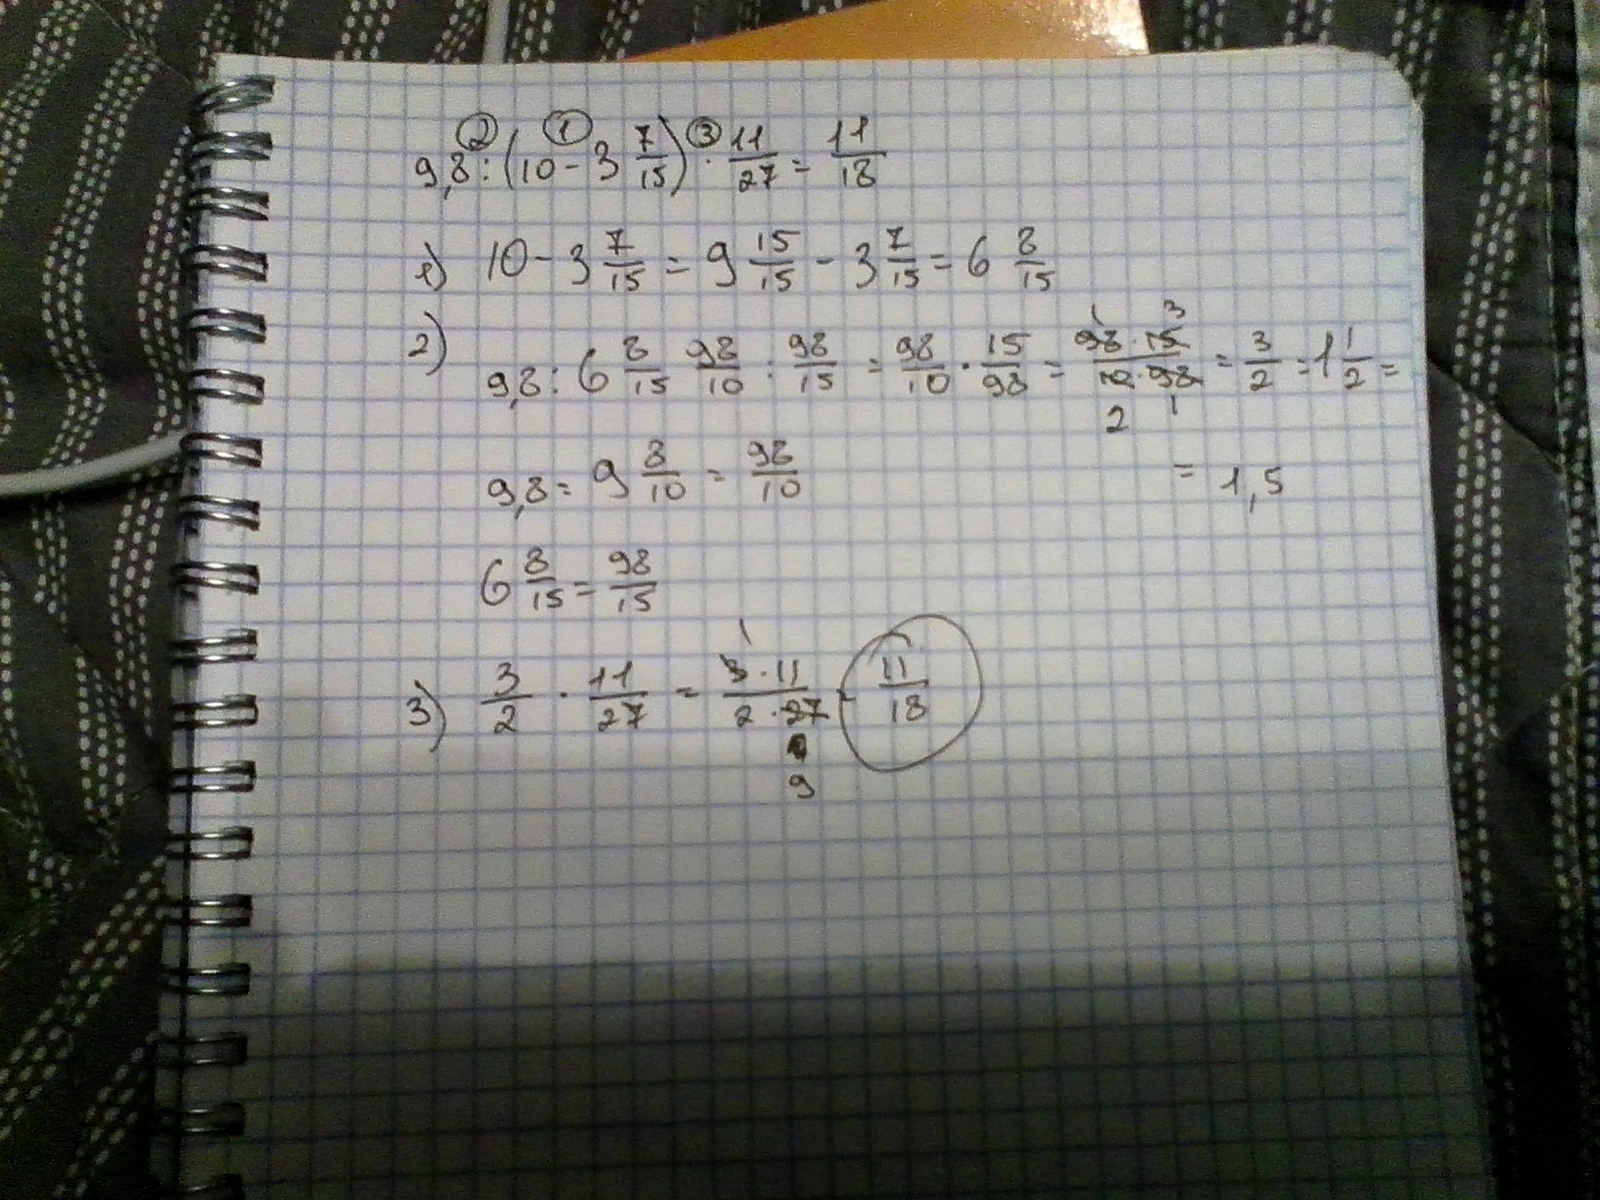 ② ① ③
9,8 : (10 - 3 7/15) · 11/27 = 11/18
1) 10 - 3 7/15 = 9 15/15 - 3 7/15 = 6 8/15
2) 9,8 : 6 8/15 98/10 : 98/15 = 98/10 · 15/98 = 98 · 15/10 · 98 = 3/2 = 1 1/2 =
1 3
2 1
9,8 = 9 8/10 = 98/10
= 1,5
6 8/15 = 98/15
3) 3/2 · 11/27 = 3 · 11/2 · 27 = 11/18
1
9